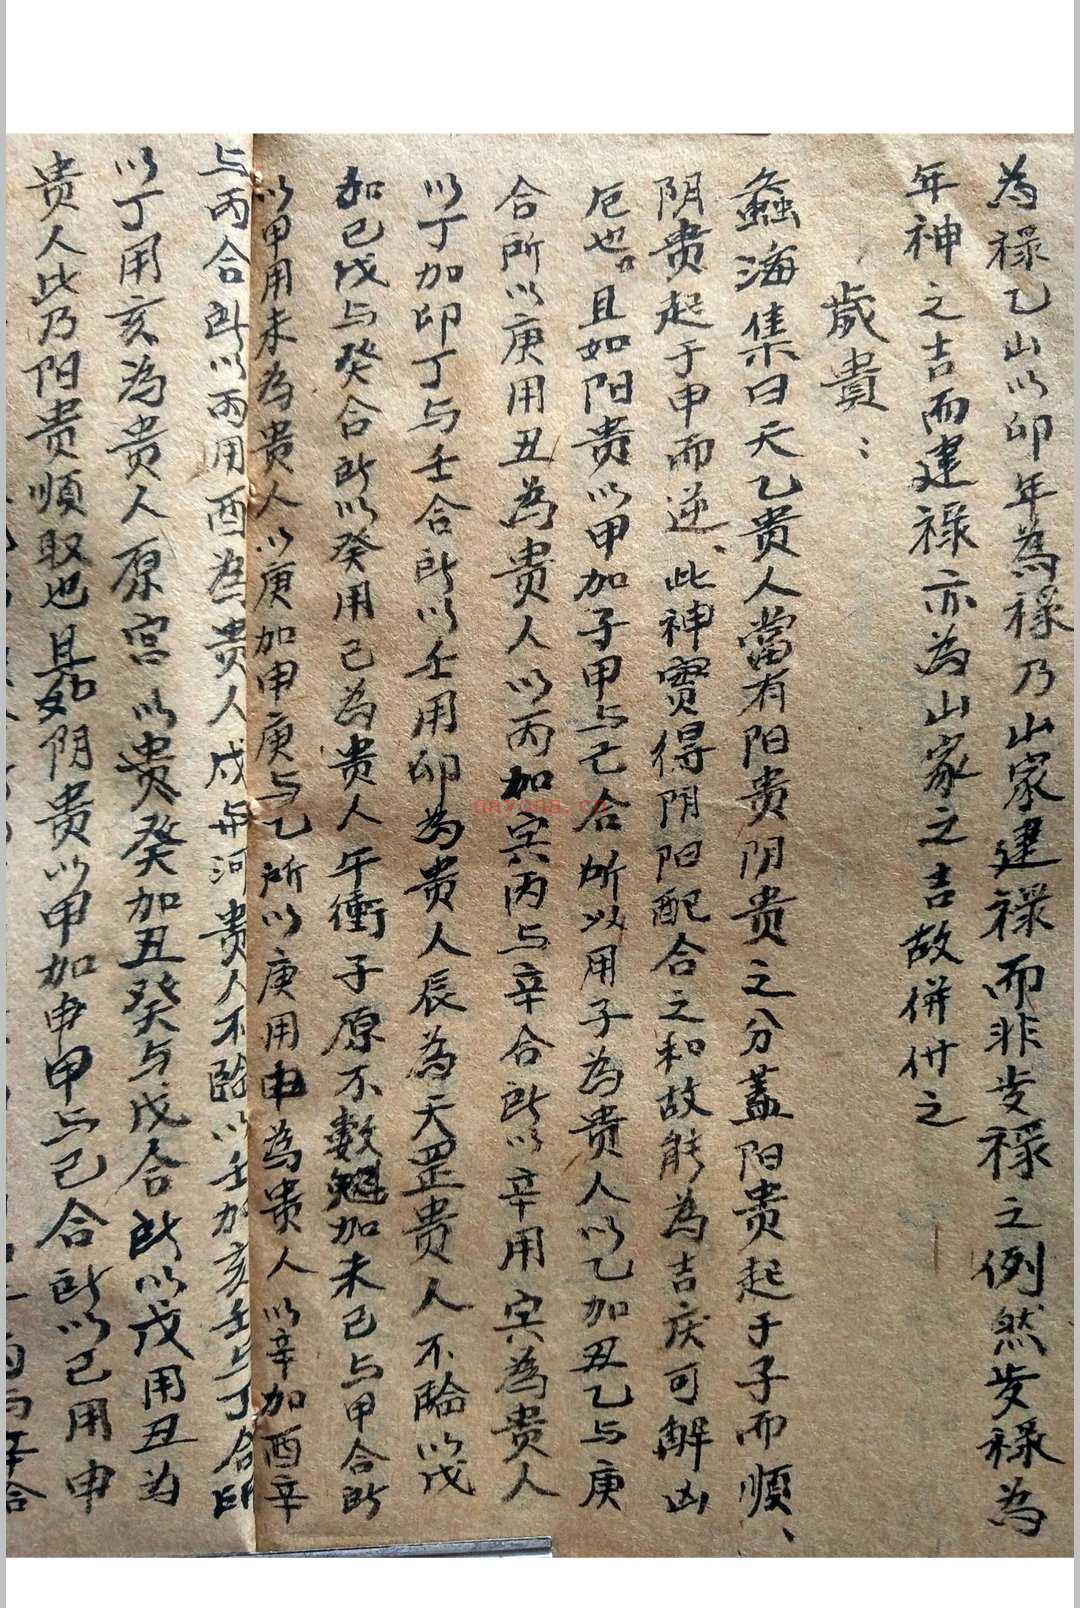 为禄乙山以卯年為禄乃山家建禄而非岁禄之例然岁禄为
年神之吉而建禄亦为山家之吉故併附之
歲貴：
蠡海集曰天乙贵人當有阳贵阴贵之分蓋阳贵起于子而順、
阴贵起于申而逆、此神實得阴阳配合之和故能为吉庆可解凶
厄也。且如阳贵以甲加子甲与己合所以用子为贵人以乙加丑乙与庚
合所以庚用丑為贵人以丙加寅丙与辛合所以辛用寅為贵人
以丁加卯丁与壬合所以壬用卯为贵人辰為天罡贵人不臨以戊
加巳戊与癸合所以癸用巳为贵人午衝子原不数魁加未己与甲合所
以甲用未為贵人以庚加申庚与乙所以庚用申為贵人以辛加酉辛
与丙合所以丙用酉為贵人戌与河贵人不臨以壬加亥壬与丁合所
以丁用亥為贵人原宮以贵癸加丑癸与戊合所以戊用丑为
贵人此乃阳贵順取也且如阴贵以甲加申甲与己合所以己用申